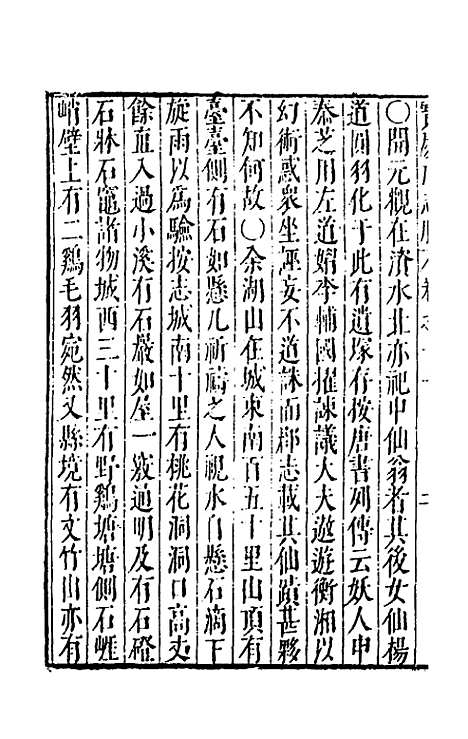 〇開元觀在濟水北亦祀申仙翁者其後女仙楊
道圓羽化于此有遺塚存按唐書列傳云妖人申
泰芝用左道媚李輔國擢諫議大夫遨遊衡湘以
幻術惑衆坐誣妄不道誅而郡志載其仙蹟甚夥
不知何故〇余湖山在城東南百五十里山頂有
臺臺側有石如懸几祈禱之人視水自懸石滴下
旋雨以爲驗按志城南十里有桃花洞洞口高丈
餘直入過小溪有石巖如屋一竅通明及有石磴
石牀石竈諸物城西三十里有野鷄塘塘側石崕
峭壁上有二鷄毛羽宛然又縣境有文竹山亦有